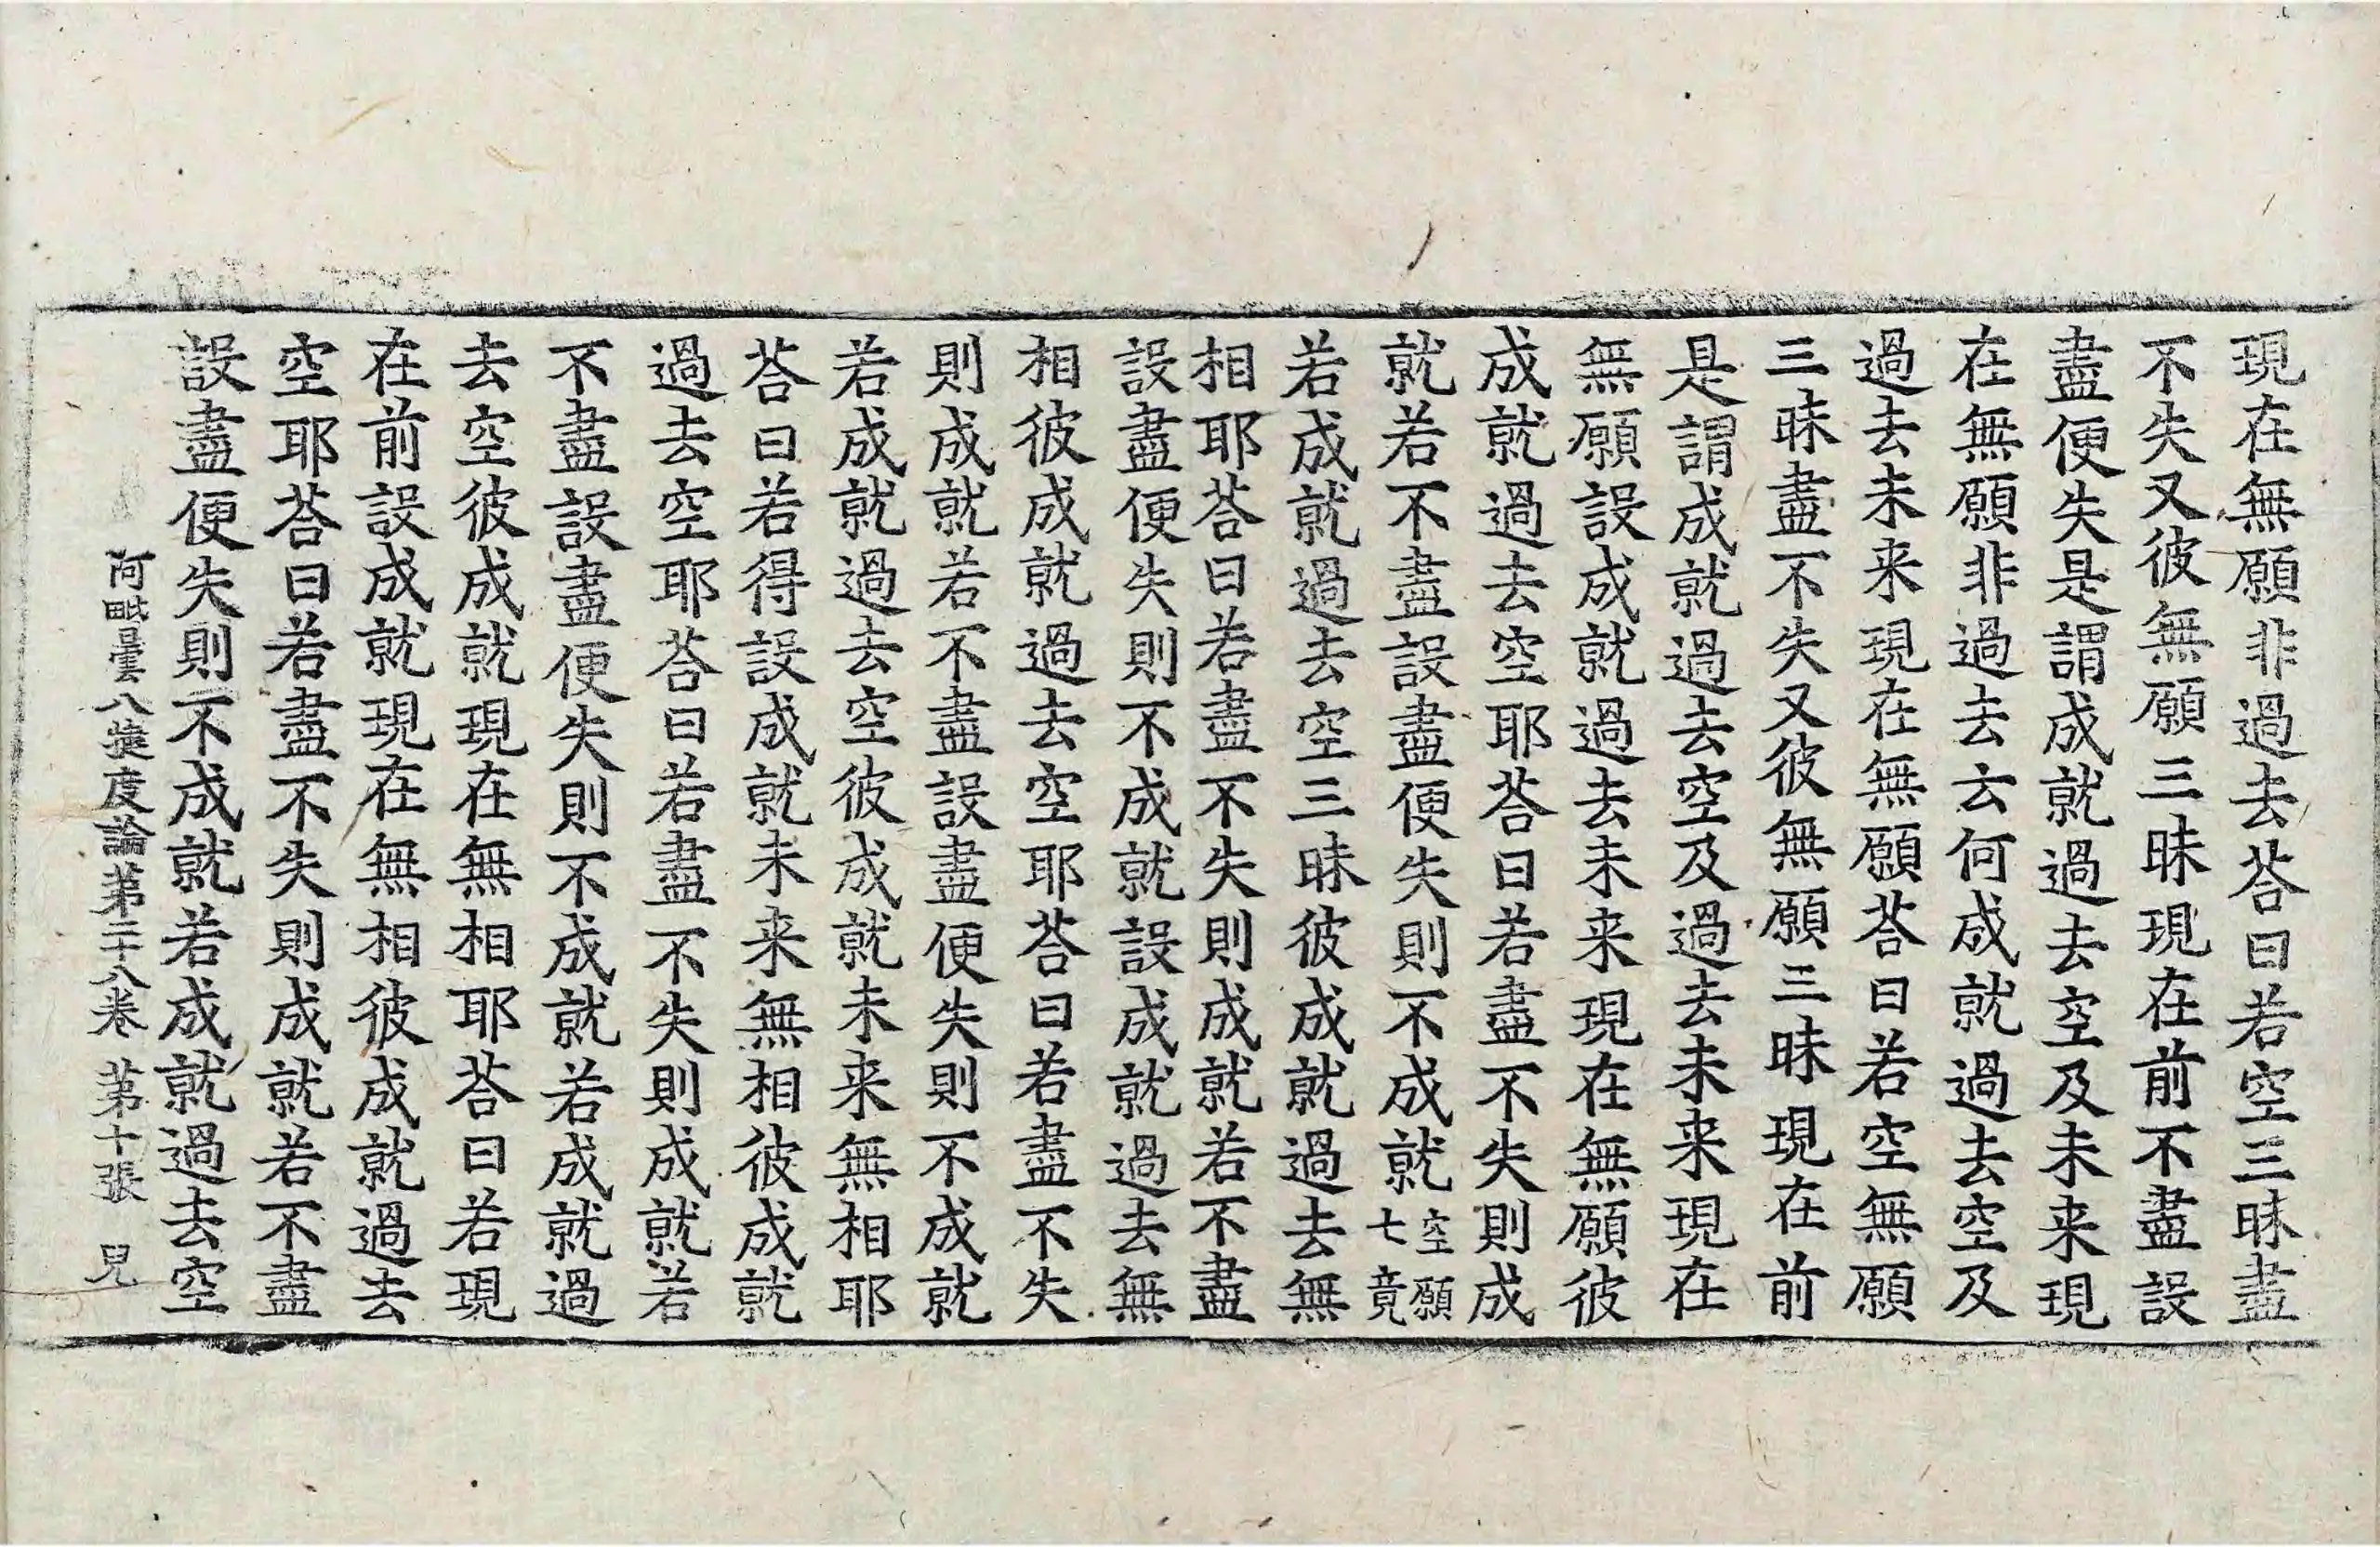 現在無願非過去荅曰若空三昧盡
不失又彼無願三昧現在前不盡設
盡便失是謂成就過去空及未来現
在無願非過去云何成就過去空及
過去未来現在無願荅曰若空無願
三昧盡不失又彼無願三昧現在前
是謂成就過去空及過去未来現在
無願設成就過去未来現在無願彼
成就過去空耶荅曰若盡不失則成
就若不盡設盡便失則不成就空願七竟
若成就過去空三昧彼成就過去無
相耶荅曰若盡不失則成就若不盡
設盡便失則不成就設成就過去無
相彼成就過去空耶荅曰若盡不失
則成就若不盡設盡便失則不成就
若成就過去空彼成就未来無相耶
荅曰若得設成就未来無相彼成就
過去空耶荅曰若盡不失則成就若
不盡設盡便失則不成就若成就過
去空彼成就現在無相耶荅曰若現
在前設成就現在無相彼成就過去
空耶荅曰若盡不失則成就若不盡
設盡便失則不成就若成就過去空
阿毗曇八揵度論第二十八卷 第十張 皃